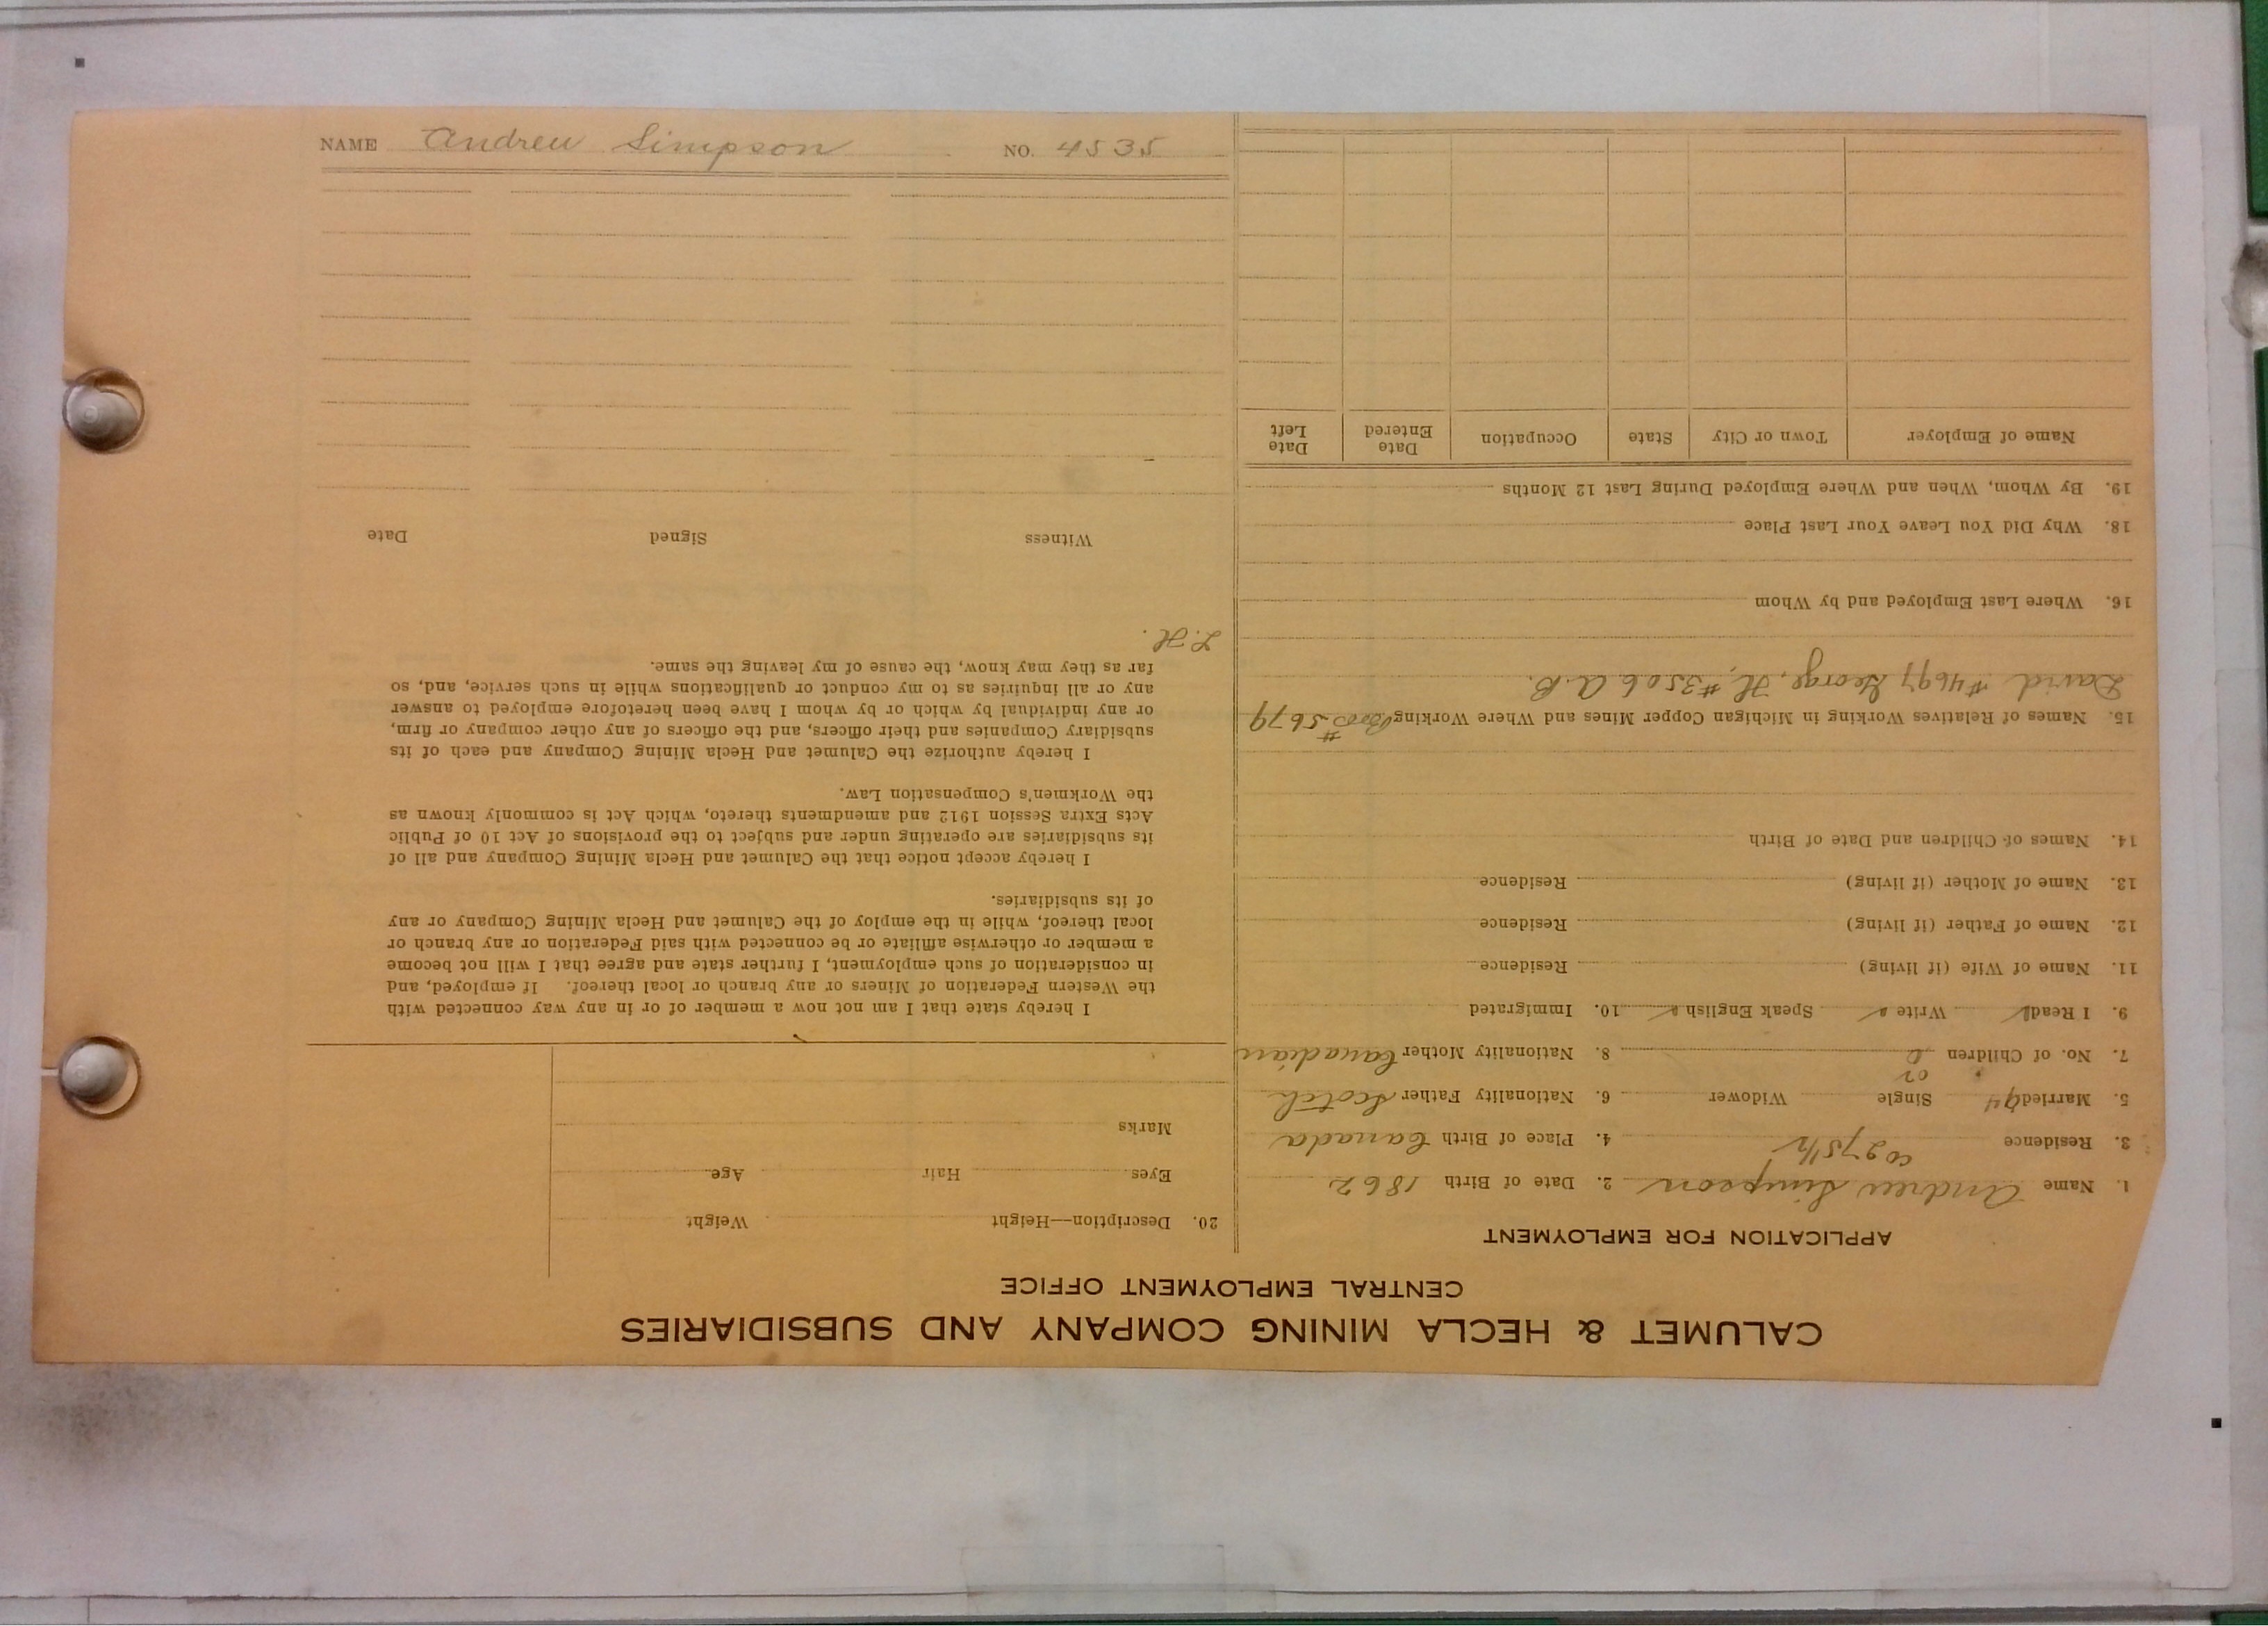 CALUMET & HECLA MINING COMPANY AND SUBSIDIARIES
CENTRAL EMPLOYMENT OFFICE
APPLICATION FOR EMPLOYMENT
1. Name Andrew Simpson 2. Date of Birth 1862
3. Residence co 275½ 4. Place of Birth Canada
5. Married Single Widower 6. Nationality Father Scotch
or
7. No. of Children 8. Nationality Mother Canadian
9. I Read Write Speak English 10. Immigrated
11. Name of Wife (if living) Residence
12. Name of Father (if living) Residence
13. Name of Mother (if living) Residence
14. Names of Children and Date of Birth
15. Names of Relatives Working in Michigan Copper Mines and Where Working # 5679
David #4697 George, H, #3506 A.B.
16. Where Last Employed and by Whom
18. Why Did You Leave Your Last Place
19. By Whom, When and Where Employed During Last 12 Months
Name of Employer Town or City State Occupation Date Entered Date Left
20. Description—Height Weight
Eyes Hair Age
Marks
I hereby state that I am not now a member of or in any way connected with
the Western Federation of Miners or any branch or local thereof. If employed, and
in consideration of such employment, I further state and agree that I will not become
a member or otherwise affiliate or be connected with said Federation or any branch or
local thereof, while in the employ of the Calumet and Hecla Mining Company or any
of its subsidiaries.
I hereby accept notice that the Calumet and Hecla Mining Company and all of
its subsidiaries are operating under and subject to the provisions of Act 10 of Public
Acts Extra Session 1912 and amendments thereto, which Act is commonly known as
the Workmen's Compensation Law.
I hereby authorize the Calumet and Hecla Mining Company and each of its
subsidiary Companies and their officers, and the officers of any other company or firm,
or any individual by which or by whom I have been heretofore employed to answer
any or all inquiries as to my conduct or qualifications while in such service, and, so
far as they may know, the cause of my leaving the same.
L.H.
Witness Signed Date
NAME Andrew Simpson NO. 4535